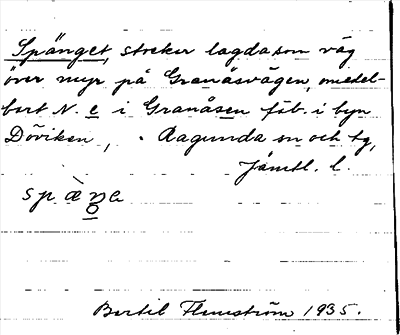 Spänget, stockar lagda som väg
över myr på Granåsvägen, omedel-
bart N. e i Granåsen fäb. i byn
Döviken, Ragunda sn och tg,
Jämtl. l.
Bertil Flemström 1935.